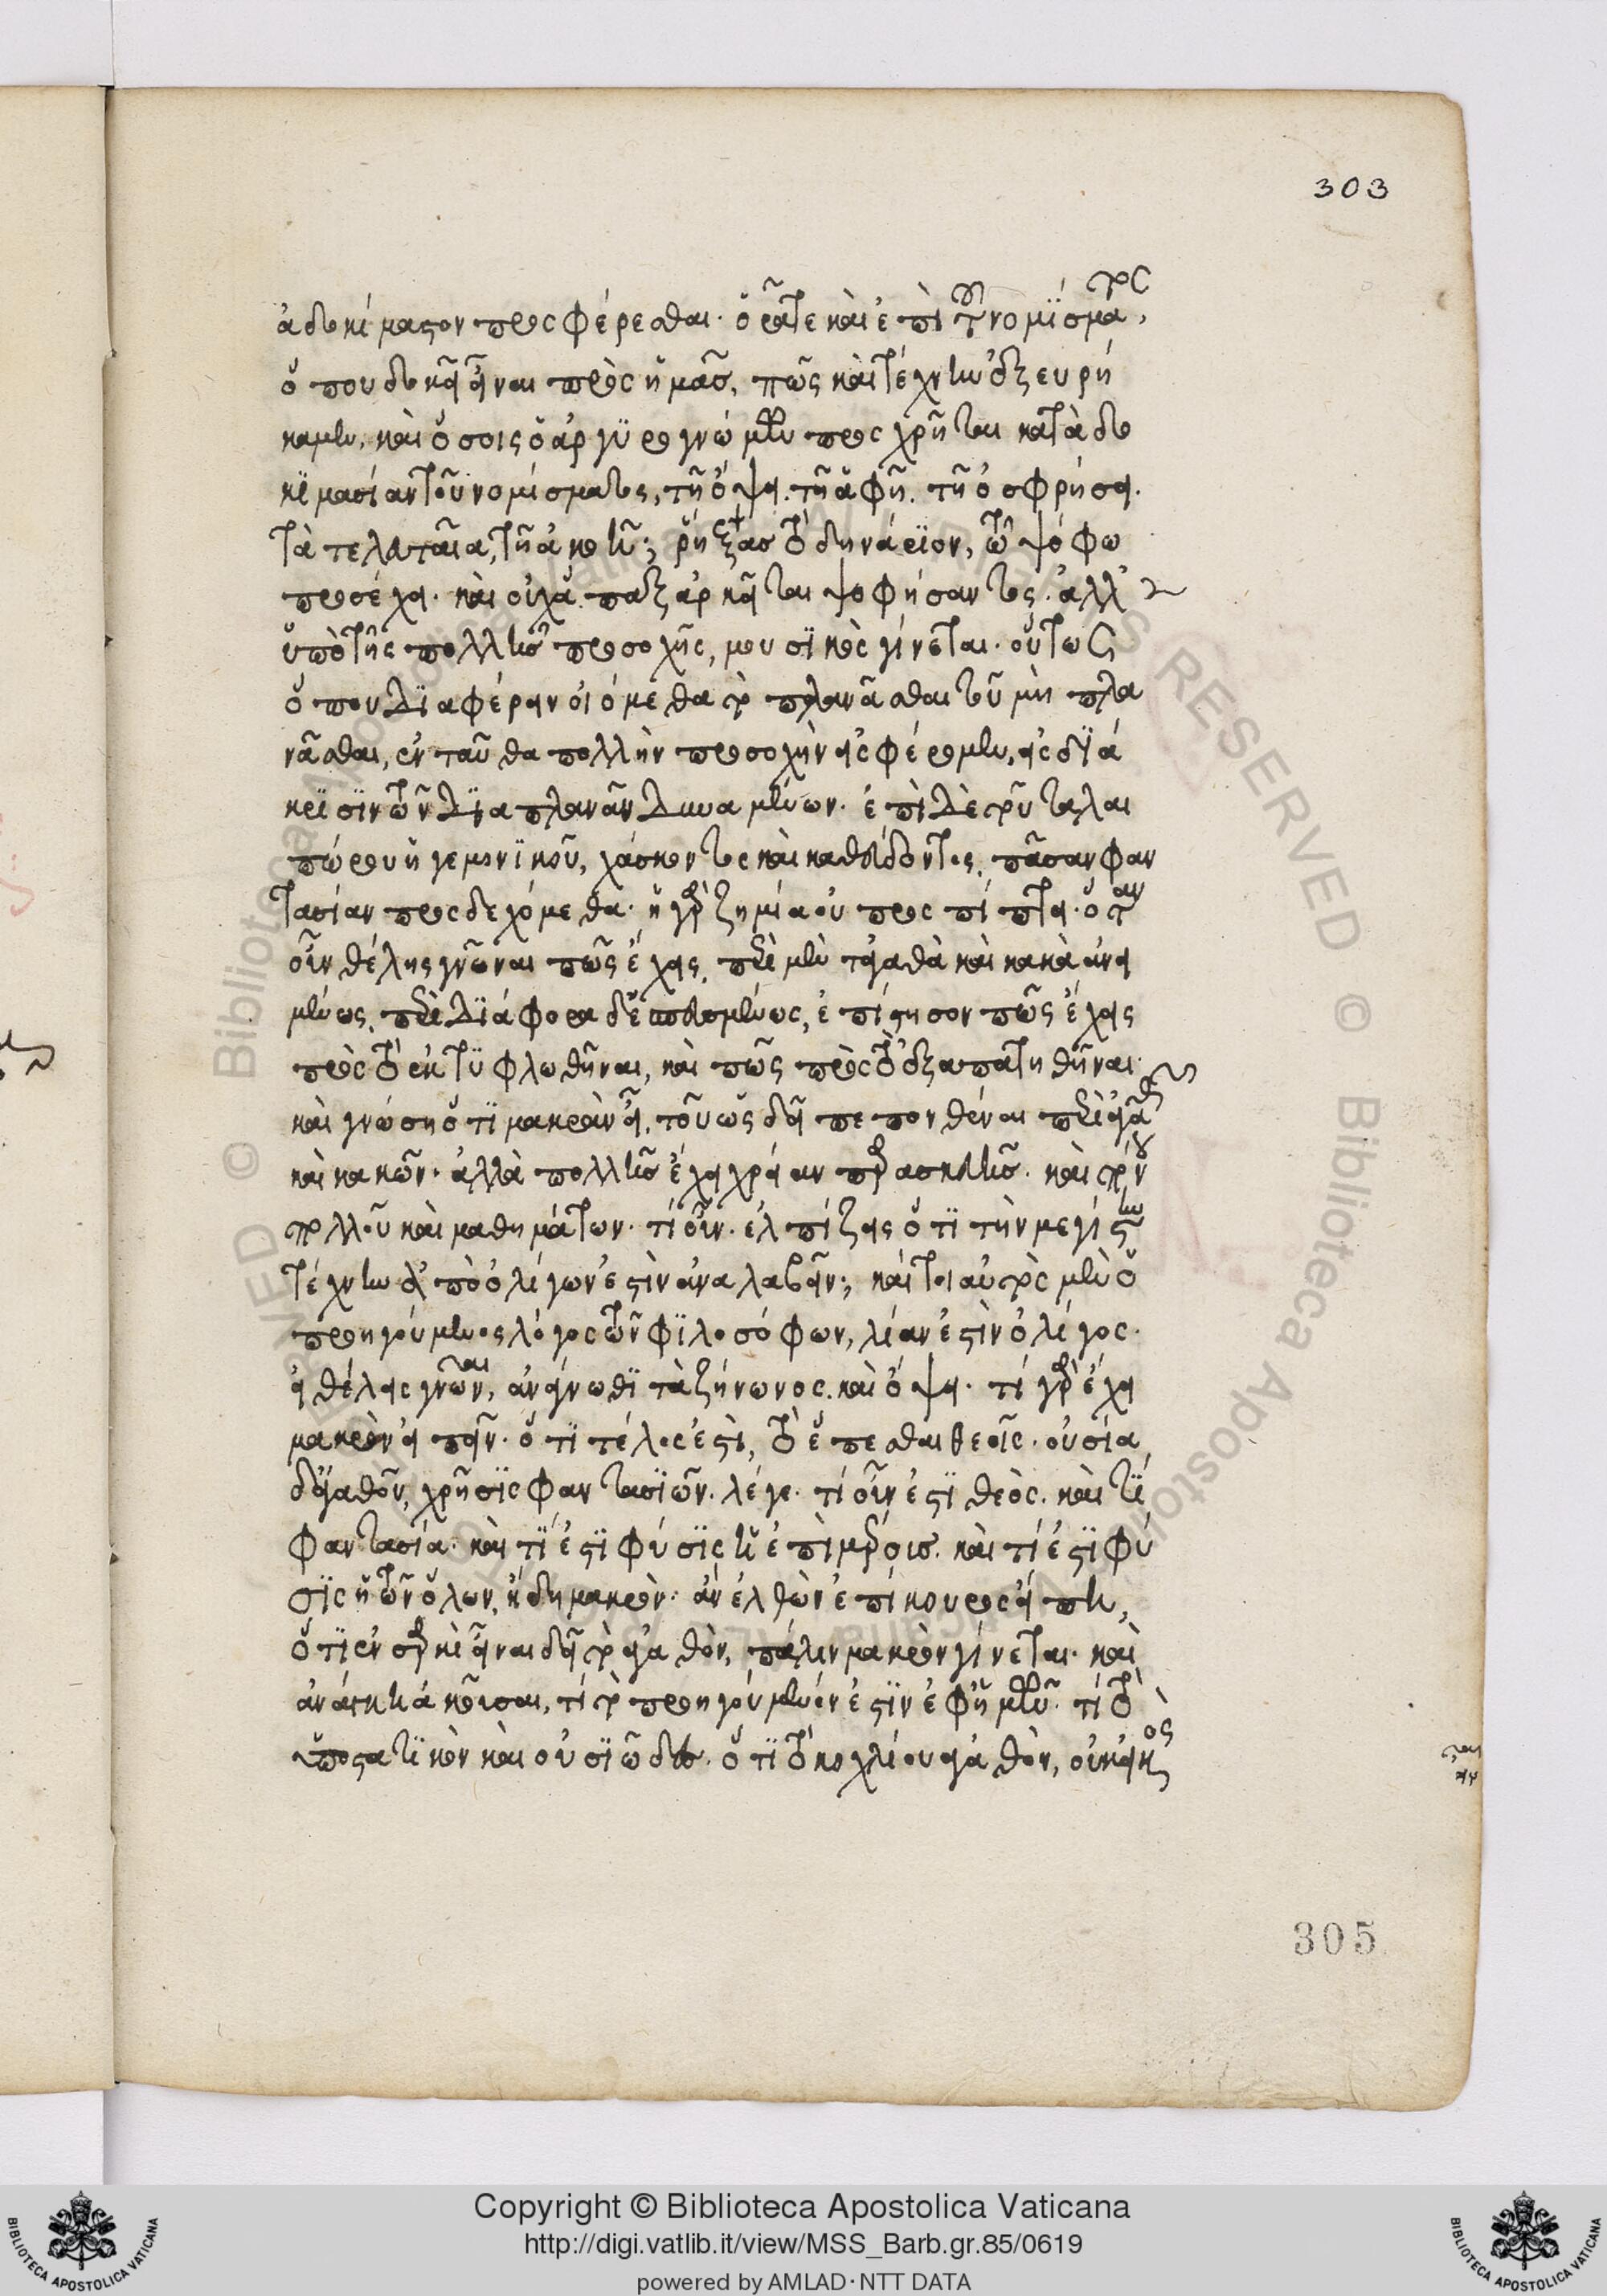 303
ἀδοκίμαστον προσφέρεσθαι. ὁρᾶτε καὶ ἐπὶ τοῦ νομίσματος,
ὅπου δοκεῖ εἶναι πρὸς ἡμᾶς, πῶς καὶ τέχνην ἐξευρή
καμεν, καὶ ὅσοις ὁ ἀργυρογνώμων προσχρῆται κατὰ δο
κιμασίαν τοῦ νομίσματος, τῇ ὄψει. τῇ ἁφῇ. τῇ ὀσφρήσει.
τὰ τελευταῖα, τῇ ἀκοῇ; ῥήξας τὸ δηνάριον, τῷ ψόφῳ
προσέχει. καὶ οὐχ ἅπαξ ἀρκεῖται ψοφήσαντος. ἀλλ'
ὑπὸ τῆς πολλῆς προσοχῆς, μουσικὸς γίνεται. οὕτως
ὅπου διαφέρειν οἰόμεθα τὸ πλανᾶσθαι τοῦ μὴ πλα
νᾶσθαι, ἐνταῦθα πολλὴν προσοχὴν εἰσφέρομεν, εἰς διά
κρισιν τῶν διαπλανᾶν δυναμένων. ἐπὶ δὲ τοῦ ταλαι
πώρου ἡγεμονικοῦ, χάσκοντες καὶ καθεύδοντες, πᾶσαν φαν
τασίαν προσδεχόμεθα. ἡ γὰρ ζημία οὐ προσπίπτει. ὅταν
οὖν θέλῃς γνῶναι πῶς ἔχεις, περὶ μὲν τἀγαθὰ καὶ κακὰ ἀνει
μένως, περὶ διάφορα δὲ ἐσπουδασμένως, ἐπίστησον πῶς ἔχεις
πρὸς τὸ ἐκτυφλωθῆναι, καὶ πῶς πρὸς τὸ ἐξαπατηθῆναι.
καὶ γνώσῃ ὅτι μακρὰν εἶ, τοῦ ὡς δεῖ πεπονθέναι περὶ ἀγαθῶν
καὶ κακῶν. ἀλλὰ πολλῆς ἔχει χρείαν παρασκευῆς. καὶ πόνου
πολλοῦ καὶ μαθημάτων. τί οὖν. ἐλπίζεις ὅτι τὴν μεγίστην
τέχνην ἀπὸ ὀλίγων ἐστὶν ἀναλαβεῖν; καίτοι αὐτὸς μὲν ὁ
προηγούμενος λόγος τῶν φιλοσόφων, λίαν ἐστὶν ὀλίγος.
εἰ θέλεις γνῶναι, ἀνάγνωθι τὰ ζήνωνος. καὶ ὄψει. τί γὰρ ἔχει
μακρὸν εἰπεῖν. ὅτι τέλος ἐστὶ, τὸ ἕπεσθαι θεοῖς. οὐσία
δ' ἀγαθοῦ, χρῆσις φαντασιῶν. λέγε. τί οὖν ἐστι θεὸς. καὶ τί
φαντασία. καὶ τί ἐστι φύσις ἡ ἐπὶ μέρους. καὶ τί ἐστι φύ
σις ἡ τῶν ὅλων, ἤδη μακρὸν. ἂν ἐλθὼν ἐπίκουρος εἴπῃ,
ὅτι ἐν σαρκὶ εἶναι δεῖ τὸ ἀγαθὸν, πάλιν μακρὸν γίνεται. καὶ
ἀνάγκη ἀκοῦσαι, τί τὸ προηγούμενόν ἐστιν ἐφ' ἡμῶν. τί τὸ
ὑποστατικὸν καὶ οὐσιῶδες. ὅτι τὸ κοχλίου ἀγαθὸν, οὐκ εἰκὸς
305
Copyright © Biblioteca Apostolica Vaticana
http://digi.vatlib.it/view/MSS_Barb.gr.85/0619
powered by AMLAD·NTT DATA